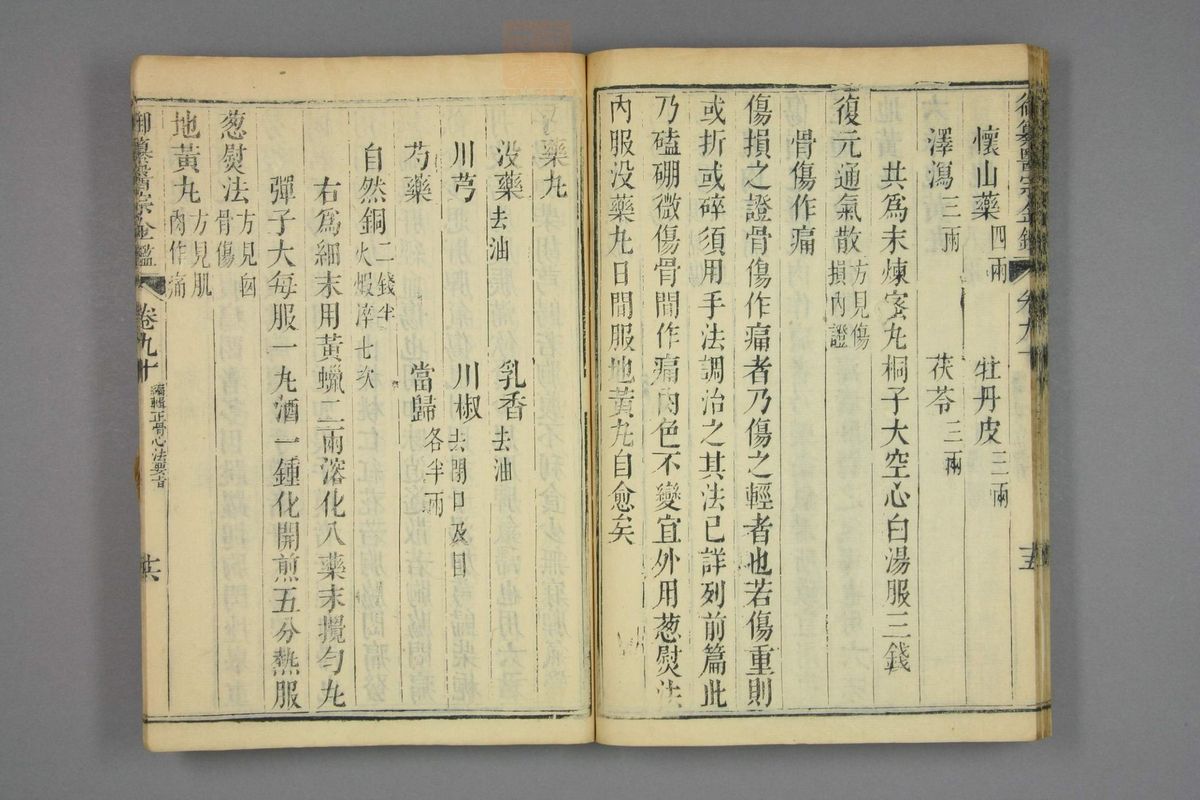 御纂醫宗金鑑 卷九十 十五
懷山藥四兩 牡丹皮三兩
澤瀉三兩 茯苓三兩
共爲末煉蜜丸桐子大空心白湯服三錢
復元通氣散方見傷損內證
骨傷作痛
傷損之證骨傷作痛者乃傷之輕者也若傷重則
或折或碎須用手法調治之其法已詳列前篇此
乃磕硼微傷骨間作痛肉色不變宜外用葱熨法
內服没藥丸日間服地黃丸自愈矣
藥丸
没藥去油 乳香去油
川芎 川椒去閉口及目
芍藥 當歸各半兩
自然銅二錢半火煆淬七次
右爲細末用黃蠟二兩溶化入藥末攪勻丸
彈子大每服一丸酒一鍾化開煎五分熱服
葱熨法方見囟骨傷
地黃丸方見肌肉作痛
御纂醫宗金鑑 卷九十 編輯正骨心法要旨 十六